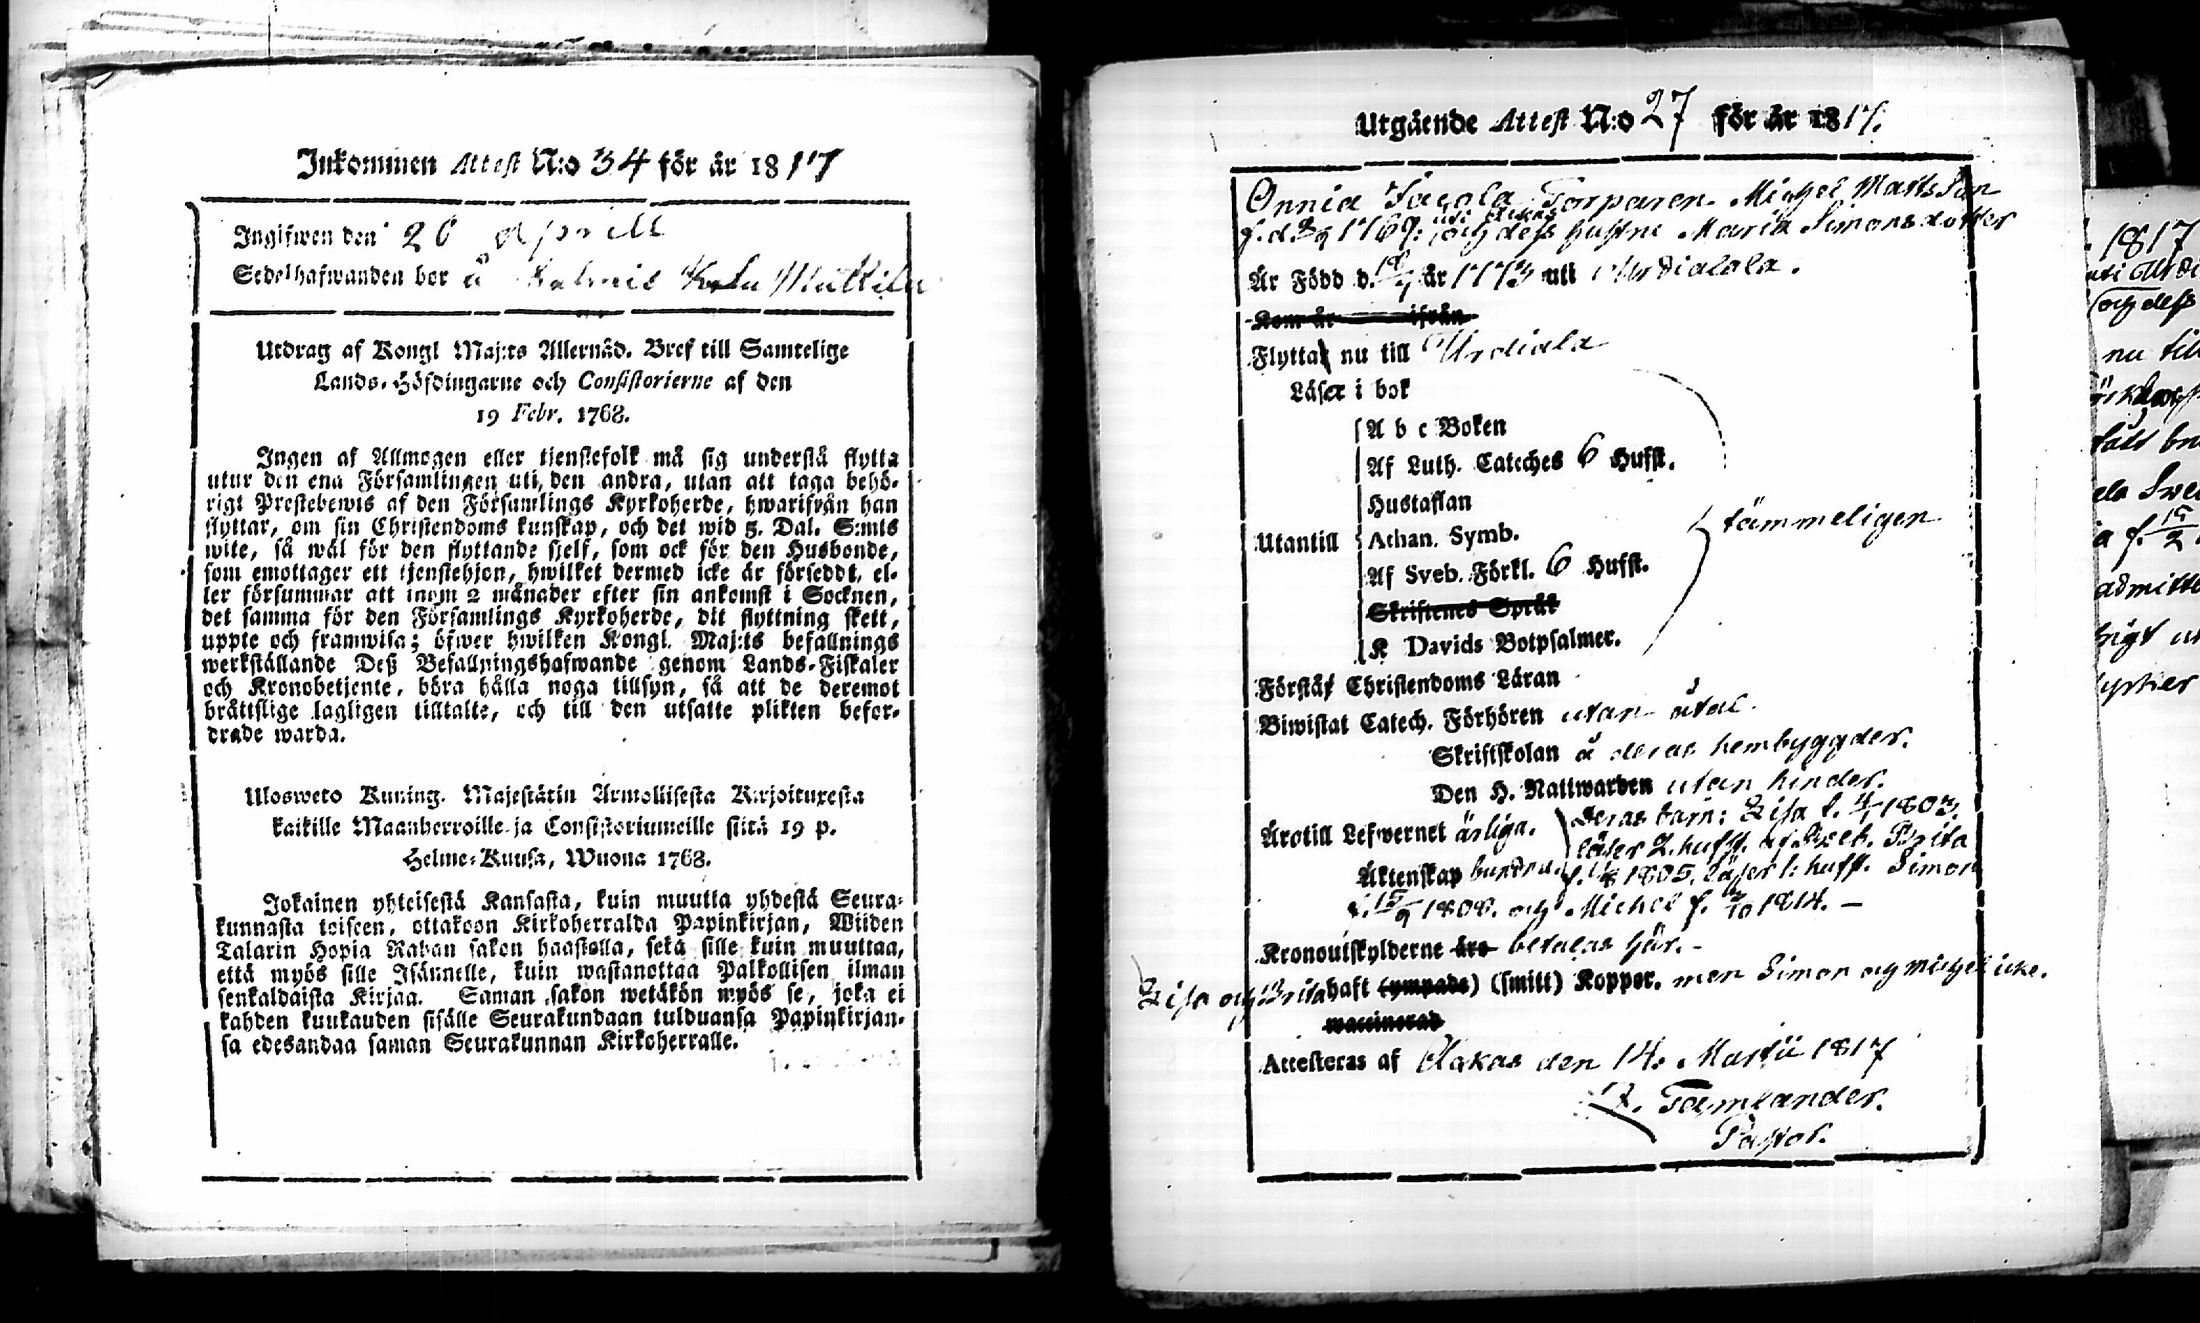 Inkommen Attest N:o 34 för år 1817
Ingifwen den 20 Aprill
Sedelhafwanden bor å Mattila
Utdrag af Kongl Maj:ts Allernåd. Bref till Samtelige
Lands-Höfdingarne och Consistorierne af den
19 Febr. 1768.
Ingen af Allmogen eller tjenstefolk må sig understå flytta
utur den ena Församlingen uti, den andra, utan att taga behö-
rigt Prestebewis af den Församlings Kyrkoherde, hwarifrån han
flyttar, om sin Christendoms kunskap, och det wid 5. Dal. S:mts
wite, så wäl för den flyttande sjelf, som ock för den Husbonde,
som emottager ett tjenstehjon, hwilket dermed icke är förseddt, el-
ler försummar att inom 2 månader efter sin ankomst i Socknen,
det samma för den Församlings Kyrkoherde, dit flyttning skett,
uppte och framwisa; öfwer hwilken Kongl. Maj:ts befallnings
werkställande Deß Befallningshafwande genom Lands-Fiskaler
och Kronobetjente, böra hålla noga tillsyn, så att de deremot
bråttslige lagligen tilltalte, och till den utsatte plikten befor-
drade warda.
Ulosweto Kuning. Majestätin Armollisesta Kirjoituxesta
kaikille Maanherroille ja Consistoriumeille siitä 19 p.
Helme-Kuusa, Wuona 1768.
Jokainen yhteisestä Kansasta, kuin muutta yhdestä Seura-
kunnasta toiseen, ottakoon Kirkoherralda Papinkirjan, Wiiden
Talarin Hopia Rahan sakon haastolla, sekä sille kuin muuttaa,
että myös sille Isännelle, kuin wastanottaa Palkollisen ilman
senkaldaista Kirjaa. Saman sakon wetäkön myös se, joka ei
kahden kuukauden sisälle Seurakundaan tulduansa Papinkirjan-
sa edesandaa saman Seurakunnan Kirkoherralle.
Utgående Attest N:o 27 för år 1817.
Onnia Torparen Michel Matts Son
1769: och dess hustru Maria Simonsdotter
Är Född d. år 1773 uti Urdiala.
Kom år ifrån
Flytta nu till Urdiala
Läser i bok
A b c Boken
Af Luth. Cateches 6 Hufst.
Hustaflan
Utantill Athan. Symb. tämmeligen
Af Sveb. Förkl. 6 Hufst.
Skriftenes Språk
K Davids Botpsalmer.
Förstå Christendoms Läran
Biwistat Catech. Förhören utan åtal.
Skriftskolan å deras hembyggder.
Den H. Nattwarden utan hinder.
Äro till Lefwernet ärliga. deras barn: Lisa f. 1803.
läser 2. hufst. af Sveb. Brita
Äktenskap f. 1805. läser 1: hufst. Simon
f. 1808. och Michel f. 1814. —
Kronoutskylderne äro betalas här. -
Lisa och Brita haft (ympade) (smitt) Koppor. men Simon och Michel icke.
waccinerad
Attesteras af Akkas den 14: Martii 1817
Tamlander.
Pastor.
1817
och dess
nu till